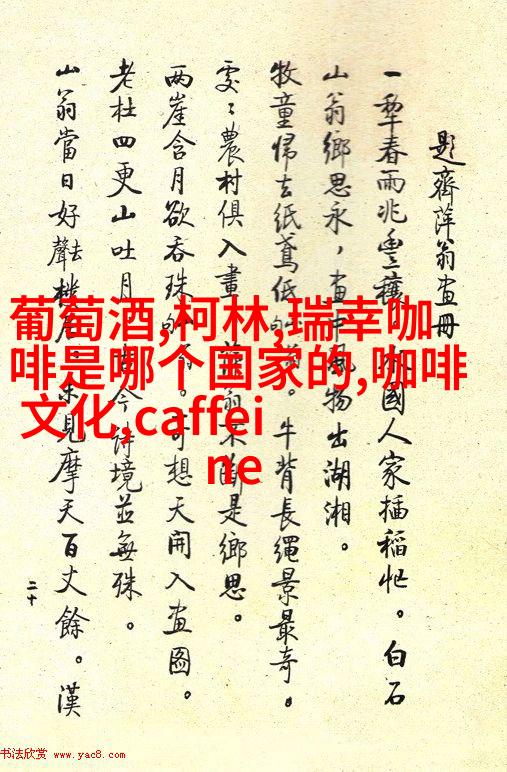 題齊萍翁畫冊
一犁春雨兆豐穰 國人家插稻忙。白石
山翁鄉思永,畫中風物出湖湘。
牧童歸去紙鳶低 。牛背長繩景最奇。
處〻農村俱入畫 翁不斷是鄉思。
兩崖含月欲吞珠 。奇想天開入畫圖。
老杜四更山吐月 今詩境並無殊。
山翁當日好聲去樓居。未見摩天百丈餘。漢
二十
葡萄酒,柯林,瑞幸咖
啡是哪个国家的,咖啡
文化,caffei
ne
书法欣赏 www.yac8.com